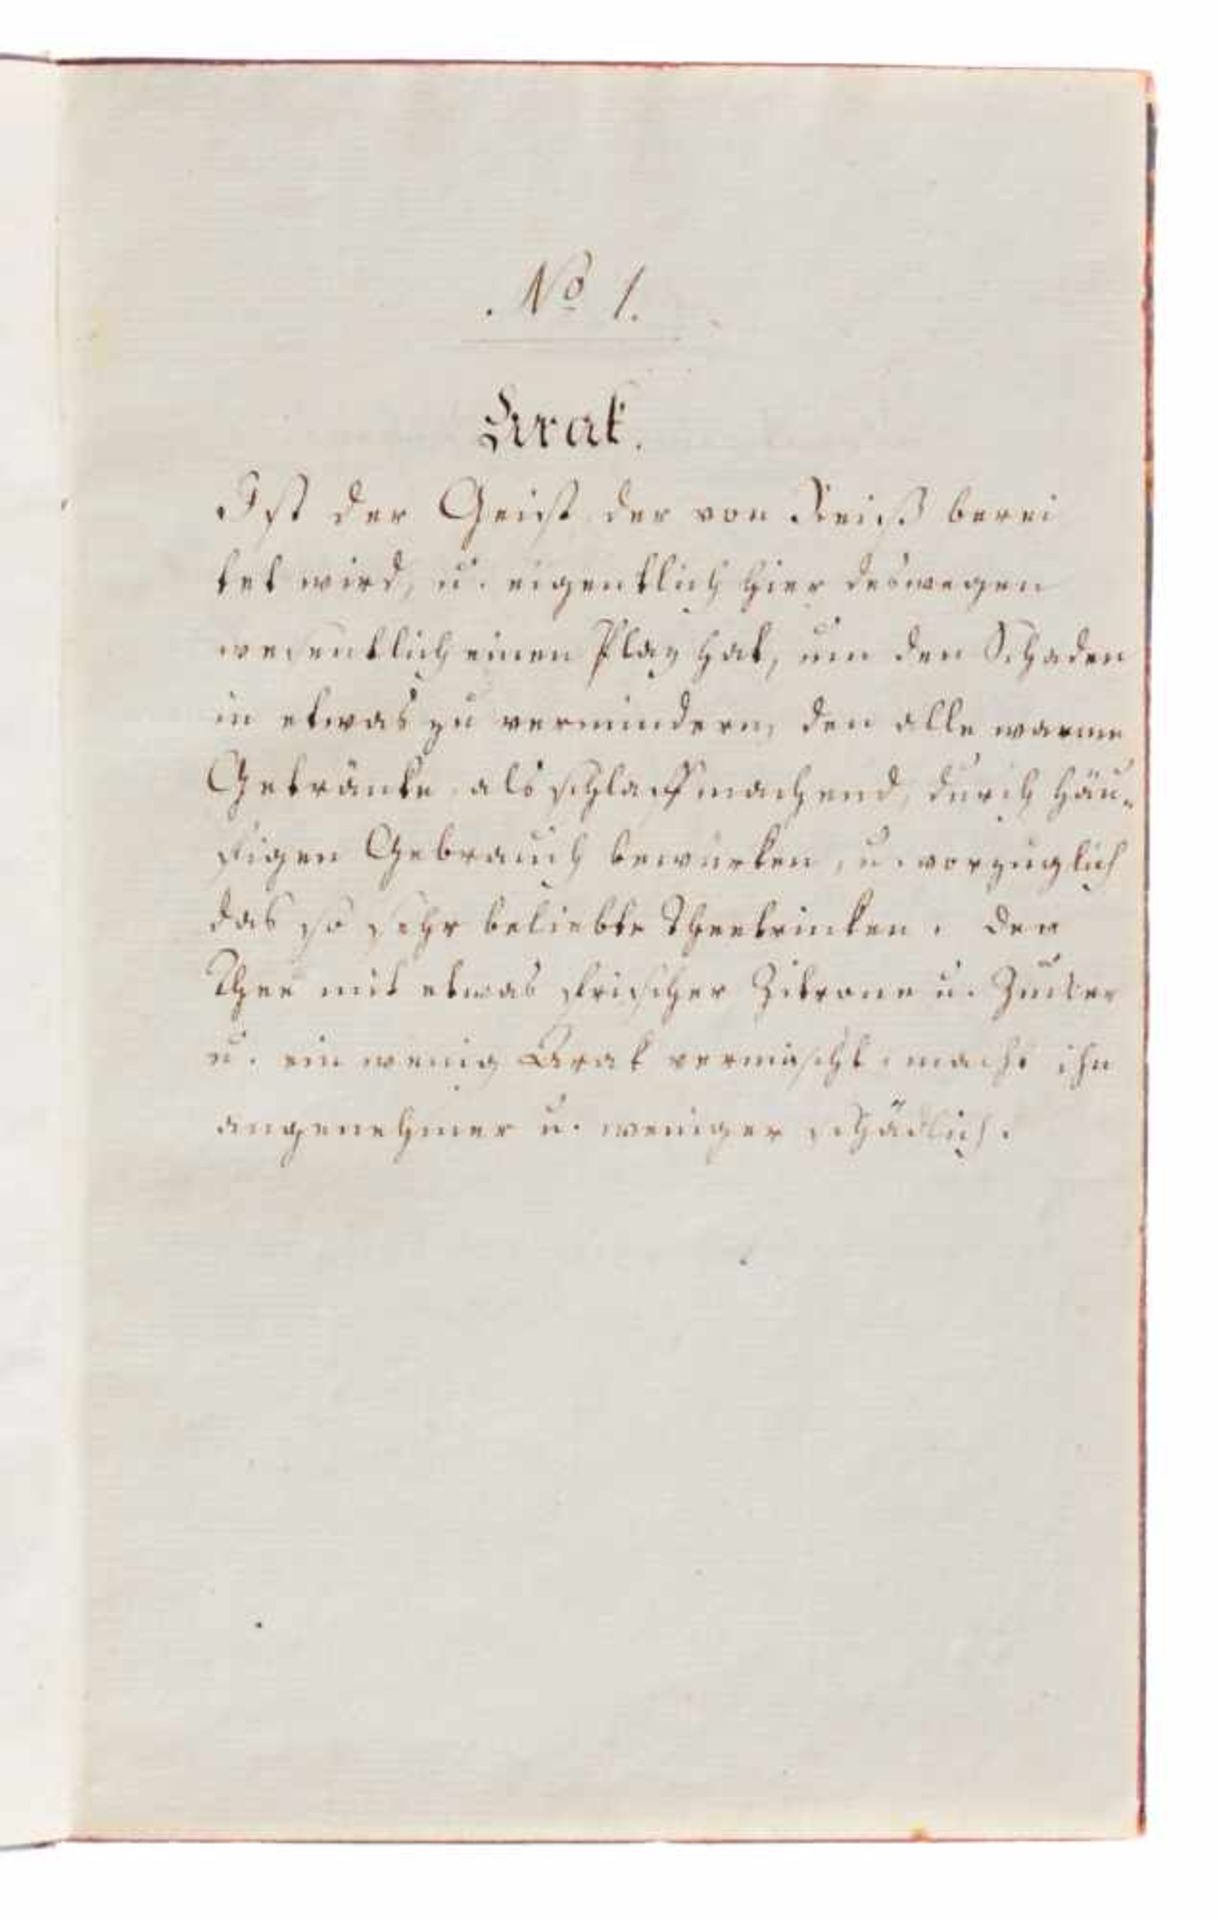 No 1.
Arak.
Ist der Geist, der von Reiß berei
tet wird, u. eigentlich hier deswegen
wesentlich einen Plaz hat, um den Schaden
in etwas zu vermindern, den alle warme
Getränke als schlaff machend, durch häu-
figen Gebrauch bewürken, u. vorzüglich
das so sehr beliebte Theetrinken. Den
Thee mit etwas frischer Zitrone u. Zucker
u. ein wenig Arak vermischt, macht ihn
angenehmer u. weniger schädlich.